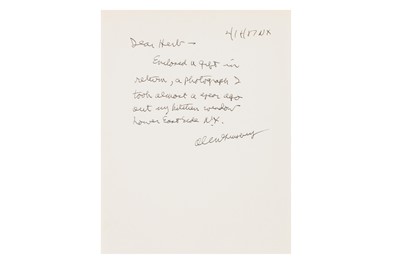 2/18/87 NY
Dear Herb —
Enclosed a gift in
return, a photograph I
took almost a year ago
out my kitchen window
Lower East Side N.Y.
Allen Ginsberg